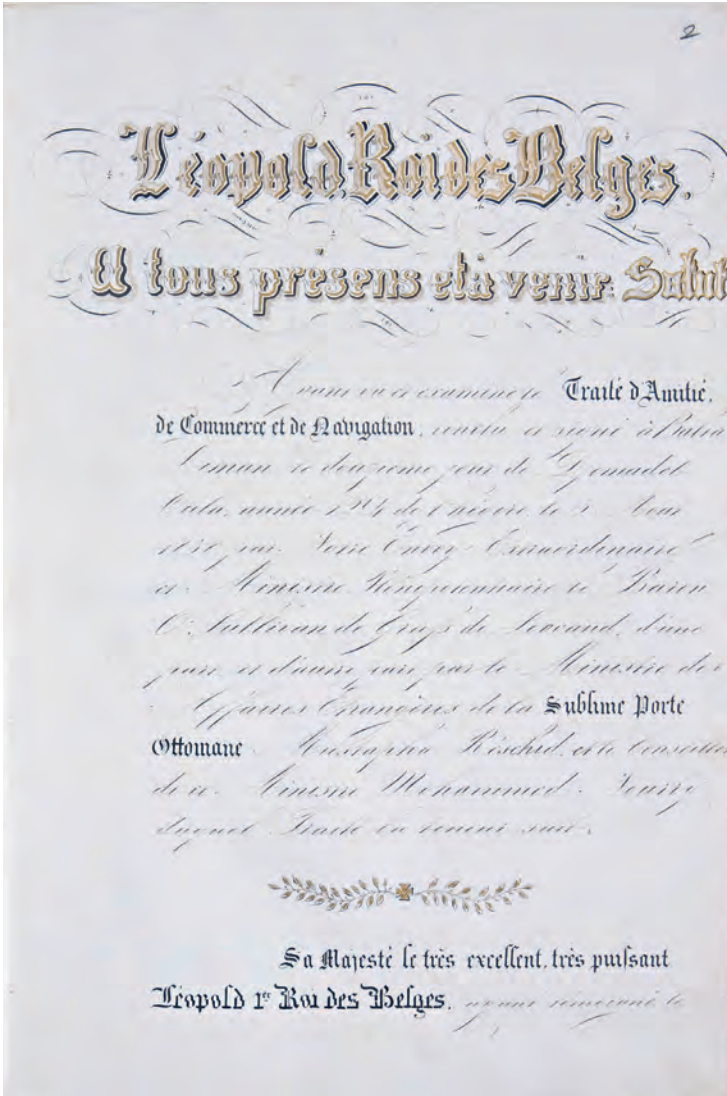 2
Léopold, Roi des Belges.
A tous présens et à venir Salut
Ayant vu et examiné le Traité d'Amitié,
de Commerce et de Navigation, conclu et signé à Balta
Liman le douzième jour de
année de l'hégire le
par Notre Envoy Extraordinaire
et Ministre Plénipotentiaire le Baron
O'Sullivan de Grass de Seovaud, d'une
part et d'autre part par le Ministre des
Affaires Etrangères de la Sublime Porte
Ottomane Mustapha Réschid, et le Conseiller
de ce Ministre Mohammed Noury
duquel Traité la teneur suit.
Sa Majesté le très excellent, très puissant
Léopold 1er Roi des Belges, ayant le